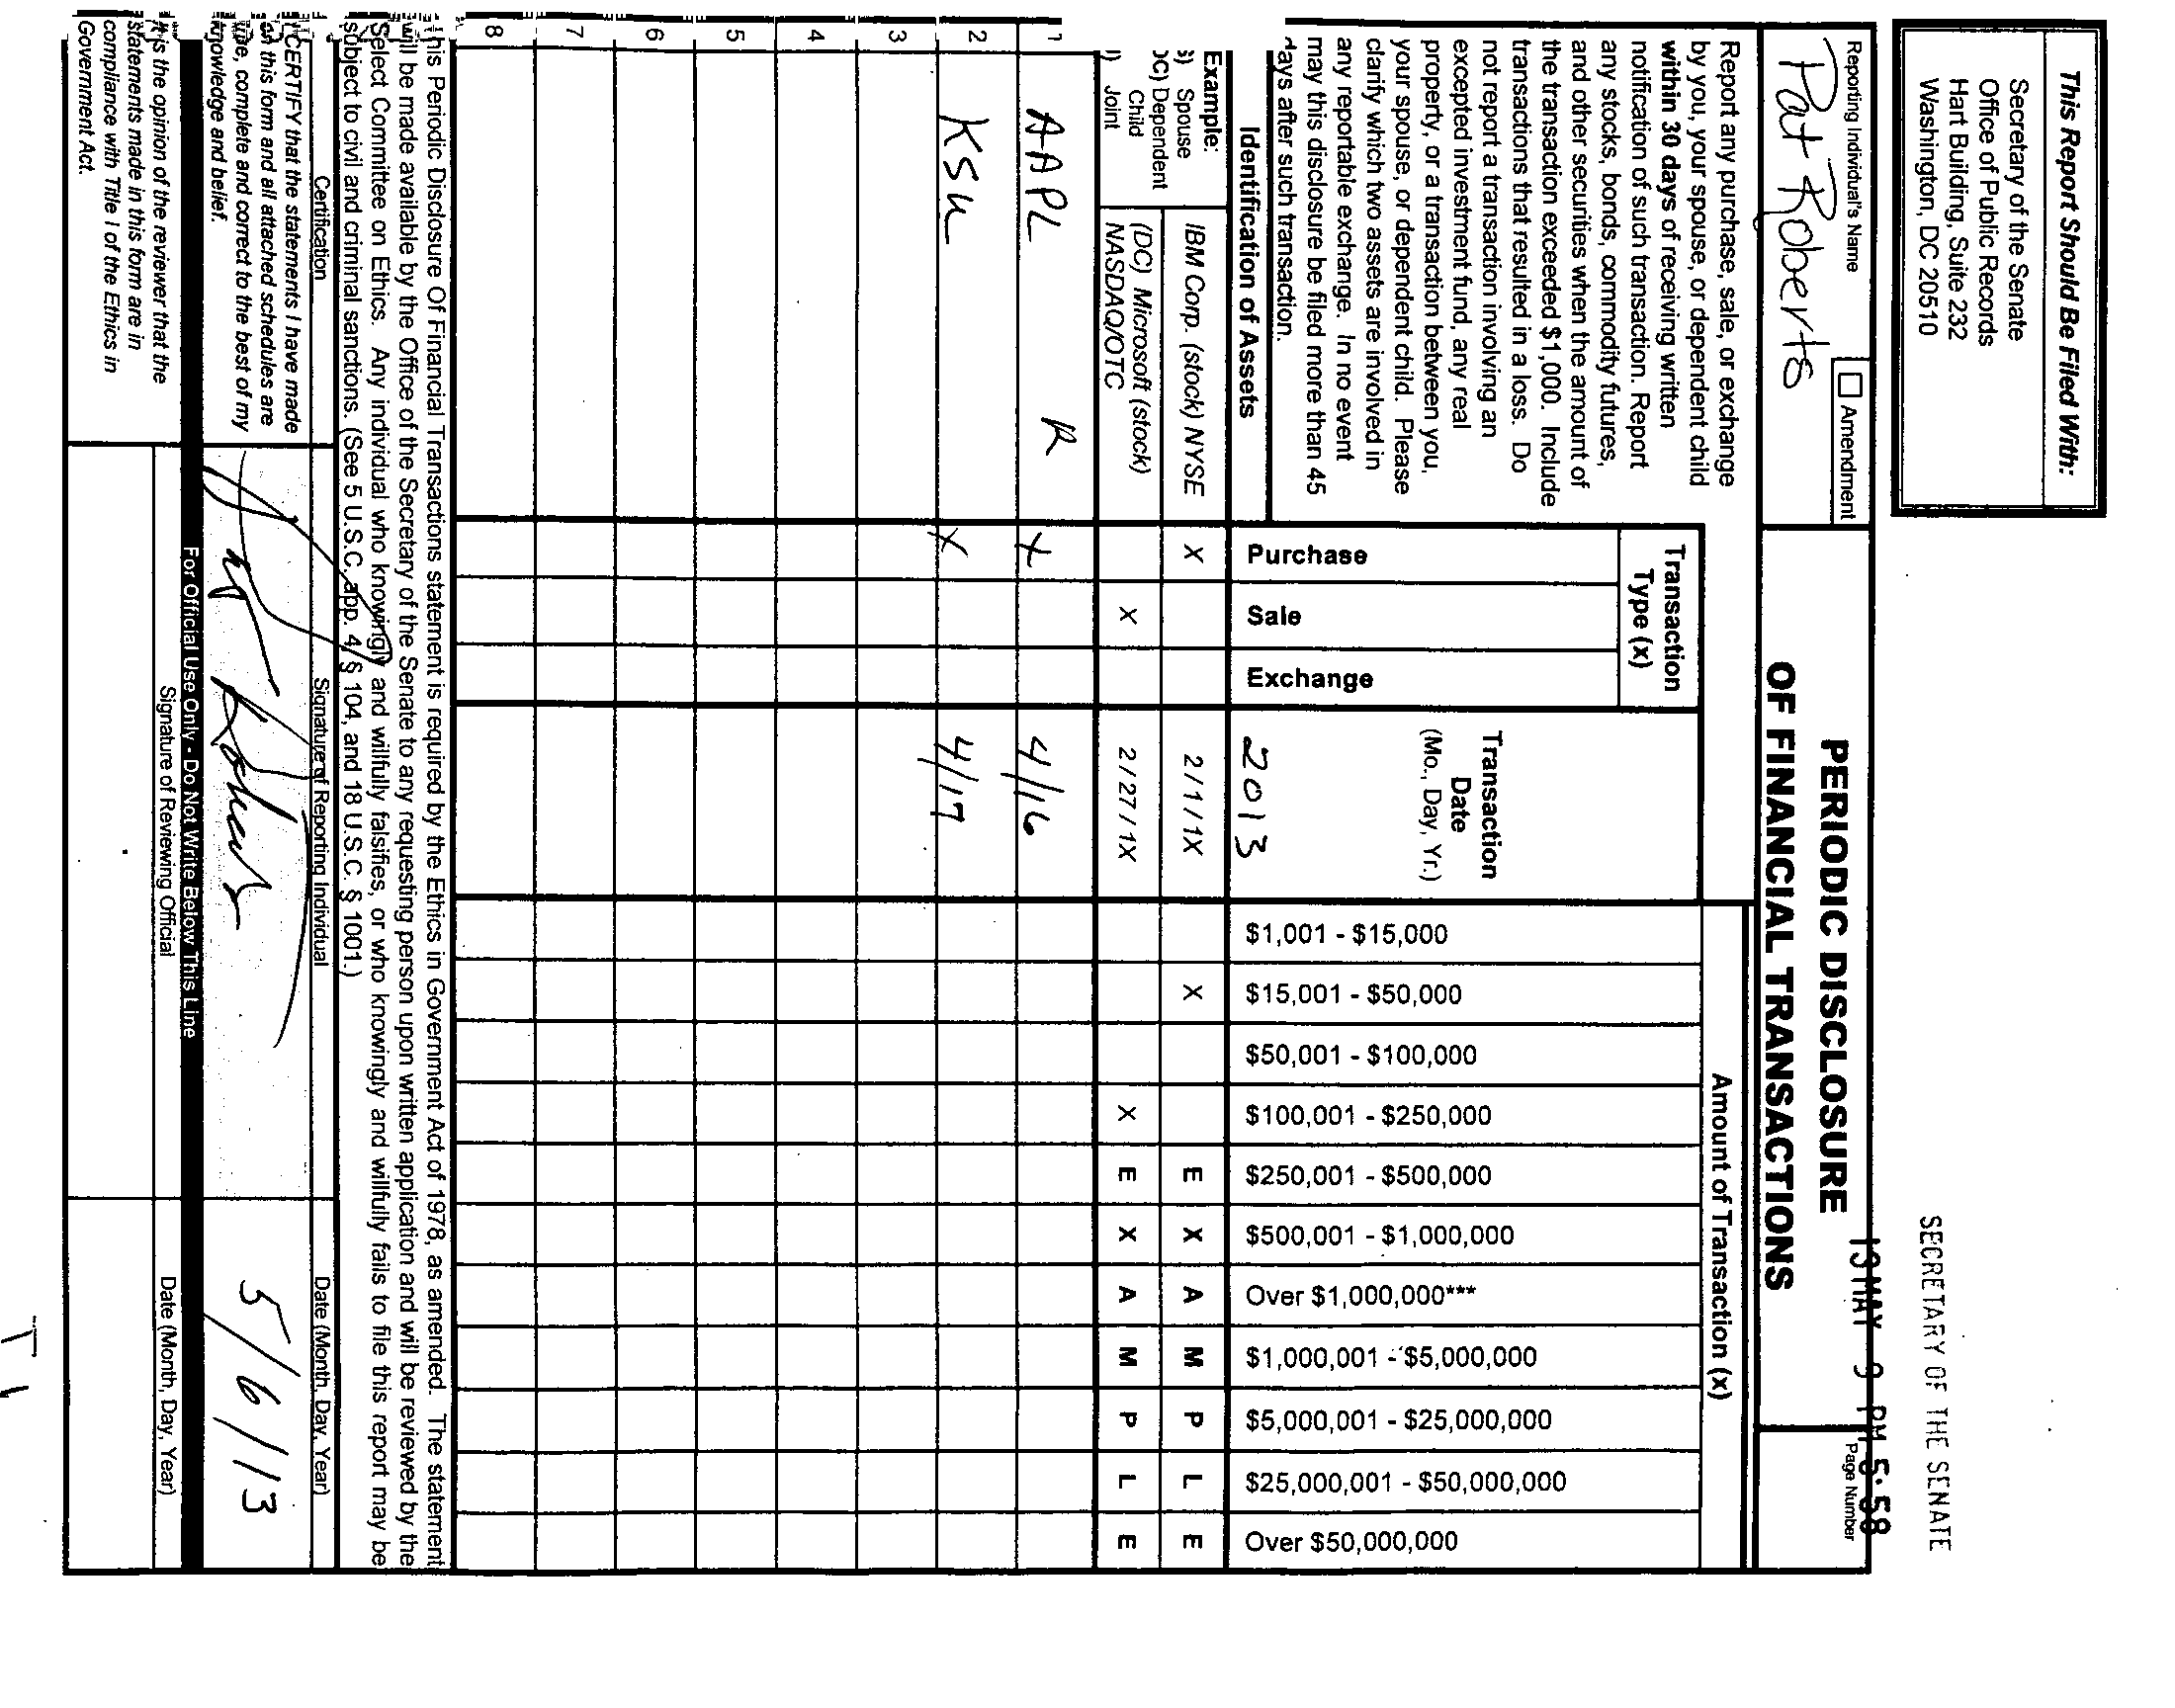 This Report Should Be Filed With:
Secretary of the Senate
Office of Public Records
Hart Building, Suite 232
Washington, DC 20510
SECRETARY OF THE SENATE
13 MAY 9 PM 5:58
Reporting Individual's Name
Pat Roberts
Amendment
PERIODIC DISCLOSURE
OF FINANCIAL TRANSACTIONS
Page Number
Report any purchase, sale, or exchange
by you, your spouse, or dependent child
within 30 days of receiving written
notification of such transaction. Report
any stocks, bonds, commodity futures,
and other securities when the amount of
the transaction exceeded $1,000. Include
transactions that resulted in a loss. Do
not report a transaction involving an
excepted investment fund, any real
property, or a transaction between you,
your spouse, or dependent child. Please
clarify which two assets are involved in
any reportable exchange. In no event
may this disclosure be filed more than 45
days after such transaction.
Identification of Assets
Transaction
Type (x)
Purchase
Sale
Exchange
Transaction
Date
(Mo., Day, Yr.)
2013
Amount of Transaction (x)
$1,001 - $15,000
$15,001 - $50,000
$50,001 - $100,000
$100,001 - $250,000
$250,001 - $500,000
$500,001 - $1,000,000
Over $1,000,000***
$1,000,001 - $5,000,000
$5,000,001 - $25,000,000
$25,000,001 - $50,000,000
Over $50,000,000
Example:
S) Spouse
DC) Dependent
Child
J) Joint
IBM Corp. (stock) NYSE X 2/1/1X X E X A M P L E
(DC) Microsoft (stock)
NASDAQ/OTC X 2/27/1X X E X A M P L E
1 AAPL R X 4/16
2 KSU X 4/17
3
4
5
6
7
8
This Periodic Disclosure Of Financial Transactions statement is required by the Ethics in Government Act of 1978, as amended. The statement
will be made available by the Office of the Secretary of the Senate to any requesting person upon written application and will be reviewed by the
Select Committee on Ethics. Any individual who knowingly and willfully falsifies, or who knowingly and willfully fails to file this report may be
subject to civil and criminal sanctions. (See 5 U.S.C. app. 4, § 104, and 18 U.S.C. § 1001.)
Certification
Signature of Reporting Individual
Date (Month, Day, Year)
I CERTIFY that the statements I have made
on this form and all attached schedules are
true, complete and correct to the best of my
knowledge and belief.
Pat Roberts
5/6/13
For Official Use Only - Do Not Write Below This Line
It is the opinion of the reviewer that the
statements made in this form are in
compliance with Title I of the Ethics in
Government Act.
Signature of Reviewing Official
Date (Month, Day, Year)